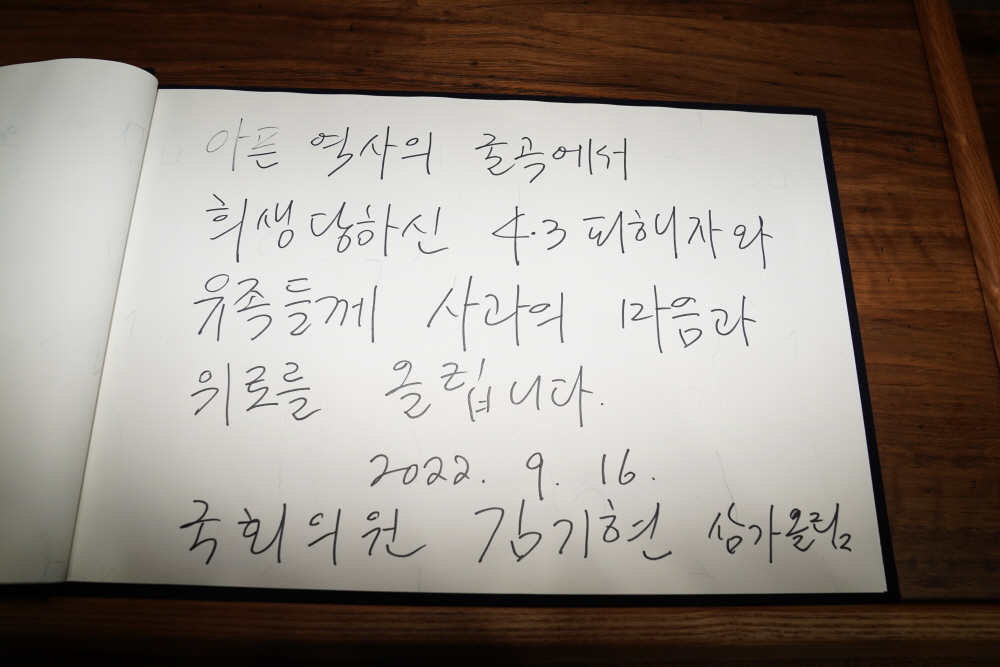 아픈 역사의 굴곡에서
희생당하신 4·3 피해자와
유족들께 사과의 마음과
위로를 올립니다.
2022. 9. 16.
국회의원 김기현 삼가올림